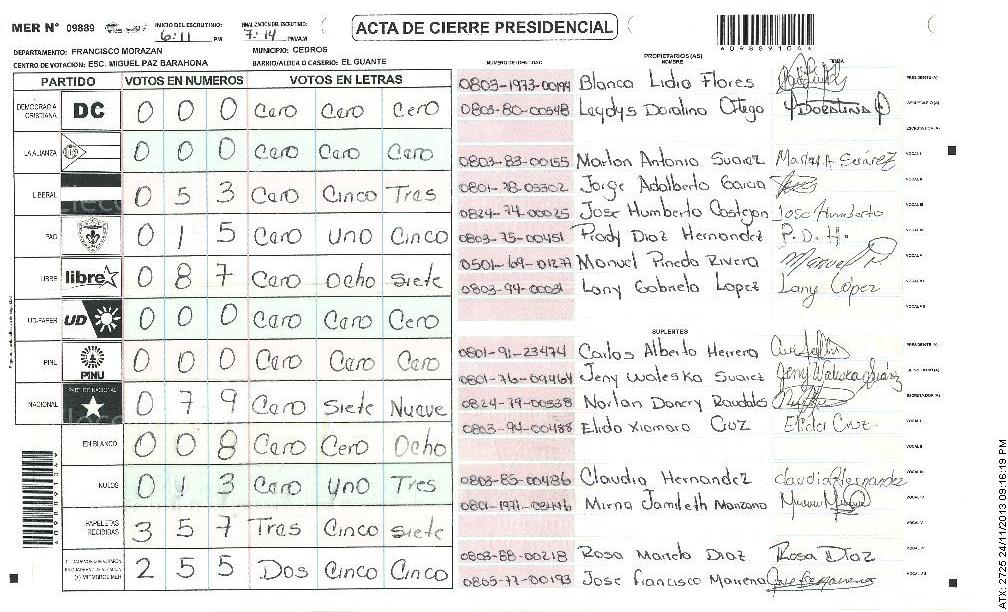 MER N° 09889 INICIO DEL ESCRUTINIO: 6:11 PM FINALIZACION DEL ESCRUTINIO: 7:14 PM/AM
ACTA DE CIERRE PRESIDENCIAL
A09889104A
DEPARTAMENTO: FRANCISCO MORAZAN MUNICIPIO: CEDROS
CENTRO DE VOTACION: ESC. MIGUEL PAZ BARAHONA BARRIO/ALDEA O CASERIO: EL GUANTE
PARTIDO VOTOS EN NUMEROS VOTOS EN LETRAS
DEMOCRACIA CRISTIANA DC 0 0 0 Cero Cero Cero
LA ALIANZA 0 0 0 Cero Cero Cero
LIBERAL 0 5 3 Cero Cinco Tres
PAC 0 1 5 Cero Uno Cinco
LIBRE libre 0 8 7 Cero Ocho Siete
UD-FAPER UD 0 0 0 Cero Cero Cero
PINU PINU 0 0 0 Cero Cero Cero
NACIONAL PARTIDO NACIONAL 0 7 9 Cero Siete Nueve
EN BLANCO 0 0 8 Cero Cero Ocho
NULOS 0 1 3 Cero Uno Tres
PAPELETAS RECIBIDAS 3 5 7 Tres Cinco Siete
2 5 5 Dos Cinco Cinco
NUMERO DE IDENTIDAD PROPIETARIOS (AS) NOMBRE FIRMA
0803-1973-00199 Blanca Lidia Flores PRESIDENTE(A)
0803-80-00548 Leydys Doralina Ortega DORALINA
ESCRUTADOR (A)
0803-83-00155 Marlon Antonio Suarez Marlon A Suárez VOCAL I
0801-78-05302 Jorge Adalberto Garcia VOCAL II
0824-74-00025 Jose Humberto Castejon Jose Humberto VOCAL III
0803-75-00451 Prody Diaz Hernandez P. D. H. VOCAL IV
0501-69-01277 Manuel Pineda Rivera Manuel P VOCAL V
0803-94-00031 Lany Gabriela Lopez Lany López VOCAL VI
VOCAL VII
SUPLENTES
0801-91-23474 Carlos Alberto Herrera PRESIDENTE (A)
0801-76-09464 Jeny Waleska Suarez Jeny Waleska Suárez
0824-79-00538 Norlan Danery Raudales ESCRUTADOR (A)
0803-94-00488 Elida Xiomara Cruz Elida Cruz VOCAL I
VOCAL II
0803-85-00486 Claudia Hernandez Claudia Hernandez VOCAL III
Mirna Jamileth Manzano VOCAL IV
VOCAL V
0803-88-00218 Rosa Mariela Diaz Rosa Díaz VOCAL VI
0805-77-00193 Jose Francisco Mairena VOCAL VII
A09889104A
ATX: 2725 24/11/2013 09:16:19 PM